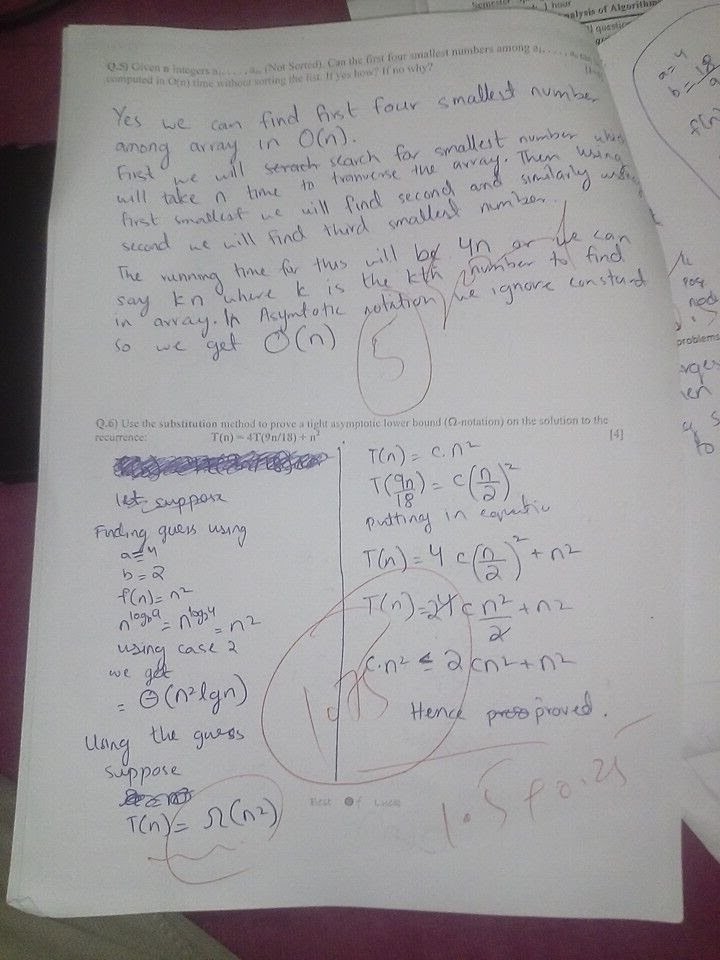 Semester
1 hour
alysis of Algorithm
questio
a=4
b=18
f(n
Q.5) Given n integers a₁, . . . . , aₙ, (Not Sorted). Can the first four smallest numbers among a₁, . . . . , aₙ can
computed in O(n) time without sorting the list. If yes how? If no why?
Yes we can find first four smallest number
among array in O(n).
First we will search for smallest number which
will take n time to tranverse the array. Then using
first smallest we will find second and similarly using
second we will find third smallest number.
The running time for this will be 4n or we can
say kn where k is the kth number to find
in array. In Asymtotic notation we ignore constant
so we get O(n)
5
problems
Q.6) Use the substitution method to prove a tight asymptotic lower bound (Ω-notation) on the solution to the
recurrence: T(n) = 4T(9n/18) + n² [4]
let suppose
Finding guess using
a=4
b=2
f(n)=n²
n^log_b a = n^log₂4 = n²
using case 2
we get
= Θ(n²lgn)
Using the guess
suppose
T(n) = Ω(n²)
T(n) = c.n²
T(9n/18) = c(n/2)²
putting in equatio
T(n) = 4 c(n/2)² + n²
T(n) = 24 c n²/2 + n²
c.n² ≤ 2 cn² + n²
Hence proved.
1.75
1.5 + 0.25
Best Of Luck